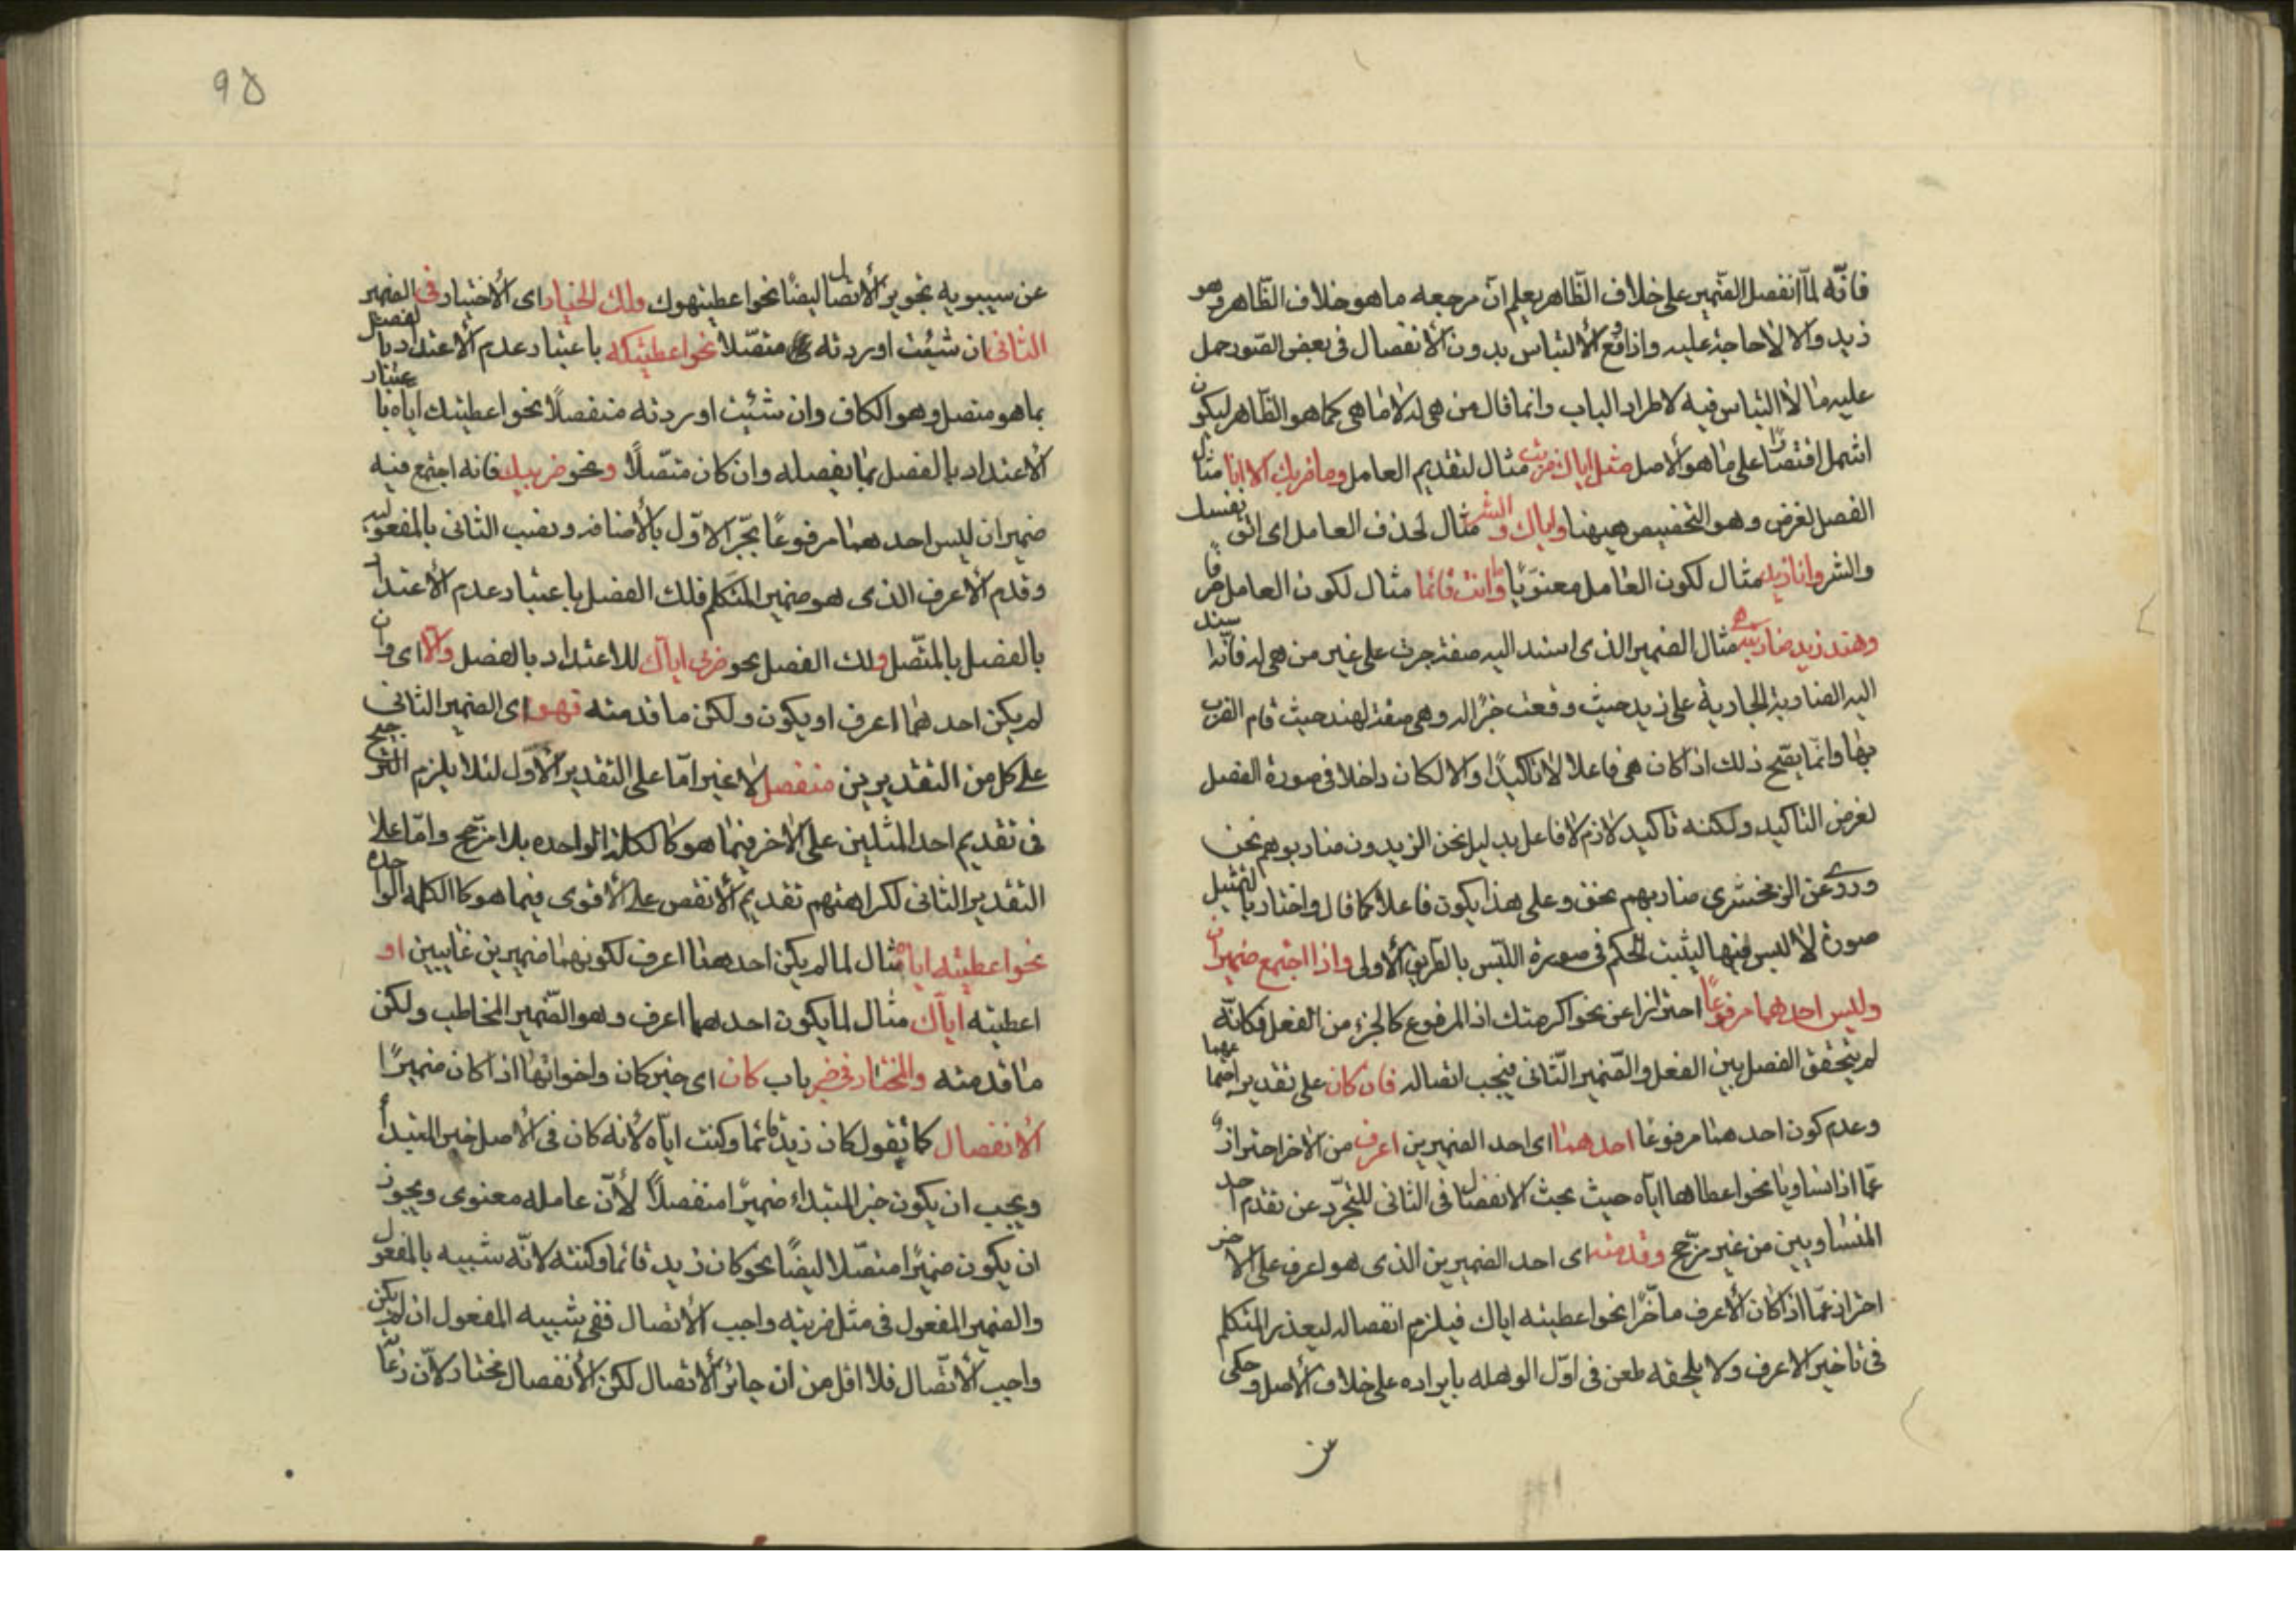 فانّه لمّا انفصل الضّمير على خلاف الظّاهر يعلم انّ مرجعه ما هو خلاف الظّاهر وهو
زيد والا لاحاجة عليه واذا وقع الالتباس بدون الانفصال فى بعض الصّور حمل
عليه ما لا التباس فيه لاطراد الباب وانما قال من هى له لا ما هى كما هو الظّاهر ليكون
اشمل اقتصارًا على ما هو الاصل مثل اياك ضربت مثال لتقديم العامل وما ضربك الا انا مثال
الفصل لغرض وهو التخصيص ههنا واياك والشر مثال لحذف العامل اى اتق نفسك
والشر وانا زيد مثال لكون العامل معنويًا وما انت قائما مثال لكون العامل حرفًا
وهند زيد ضاربته هى مثال الضمير الذى اسند اليه صفة جرت على غير من هى له فانه اسند
اليه الضاربة الجارية على زيد حيث وقعت خبرًا له وهى صفة لهند حيث قام الضرب
بها وانّما يصّح ذلك اذا كان هى فاعلا لا تاكيدًا والا لكان داخلا فى صورة الفصل
لغرض التاكيد ولكنه تاكيد لازم لا فاعل بدليل نحن الزيدون ضاربوهم نحن
وروى عن الزمخشرى ضاربهم نحن وعلى هذا يكون فاعلا كما قال واختار بالتمثيل
صورة لا لبس فيها ليثبت الحكم فى صورة اللبس بالطريق الاولى واذا اجتمع ضميران
وليس احدهما مرفوعًا احترازا عن نحو اكرمتك اذ المرفوع كالجزء من الفعل فكانّه
لم يتحقق الفصل بين الفعل والضّمير الثّانى فيجب اتصاله فان كان على تقدير اجتماعهما
وعدم كون احدهما مرفوعا احدهما اى احد الضميرين اعرف من الاخر احترازٌ
عمّا اذا تساويا نحو اعطاها ايّاه حيث يجب الانفصال فى الثانى للتجرّد عن تقدم احد
المتساويين من غير مرّجح وقدمته اى احد الضميرين الذى هو اعرف على الاخر
احتراز عمّا اذا كان الاعرف مأخّرا نحو اعطيته اياك فيلزم انفصاله ليعذر المتكلم
فى تاخير الاعرف ولا يلحقه طعن فى اوّل الوهله بايراده على خلاف الاصل وحكى
٩٥
عن سيبويه تجويز الاتصال ايضًا نحو اعطيتهوك ولك الخيار اى الاختيار فى الضمير
الثانى ان شئت اوردته متصّلا نحو اعطيتكه باعتبار عدم الاعتداد بالفصل
بما هو متصل وهو الكاف وان شئت اوردته منفصلًا نحو اعطيتك اياه باعتبار
الاعتداد بالفصل بما يفصله وان كان متّصلًا ونحو ضربيك فانه اجتمع فيه
ضميران ليس احدهما مرفوعًا بجّر الاوّل بالاضافة ونصب الثانى بالمفعوليه
وقدم الاعرف الذى هو ضمير المتكلم فلك الفصل باعتبار عدم الاعتداد
بالفصل بالمتّصل ولك الفصل نحو ضربى اياك للاعتداد بالفصل والّا اى وان
لم يكن احدهما اعرف او يكون ولكن ما قدمته فهو اى الضمير الثانى
على كل من التقديرين منفصل لا غير امّا على التقدير الاوّل لئلا يلزم الترجيح
فى تقديم احد المثلين على الاخر فيما هو كالكلمة الواحده بلا مرّجح وامّا على
التقدير الثانى لكراهتهم تقديم الانقص على الاقوى فيما هو كالكلمه الواحده
نحو اعطيته اياه مثال لما لم يكن احدهما اعرف لكونهما ضميرين غايبين او
اعطيته ايّاك مثال لما يكون احدهما اعرف وهو الضّمير المخاطب ولكن
ما قدمته والمختار فى خبر باب كان اى خبر كان واخواتها اذا كان ضميرًا
الانفصال كما تقول كان زيد قائما وكنت ايّاه لانه كان فى الاصل خبر المبتدأ
ويجب ان يكون خبر المبتداء ضميرًا منفصلاً لأنّ عامله معنوى ويجوز
ان يكون ضميرًا متصّلا ايضًا نحو كان زيد قائما وكنته لانّه شبيه بالمفعول
والضمير المفعول فى مثل ضربته واجب الاتصال ففى شبيه المفعول ان لم يكن
واجب الاتّصال فلا اقل من ان جائز الاتصال لكن الانفصال مختار لانّ رعاية